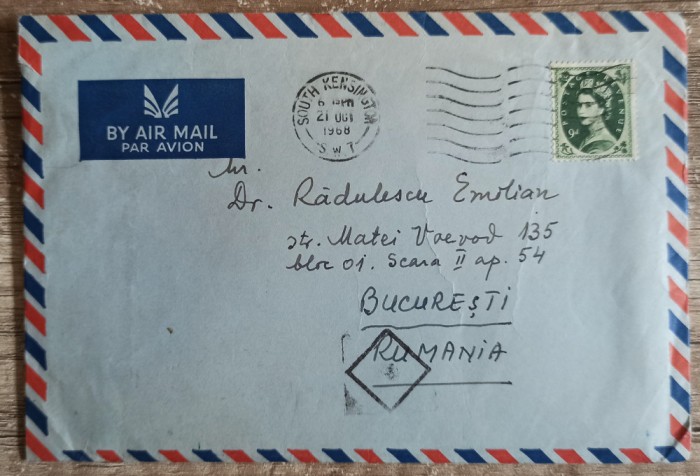 BY AIR MAIL
PAR AVION
SOUTH KENSINGTON
6 15 PM
21 OCT
1968
S W 7
POSTAGE REVENUE
9D
Dr. Rădulescu Emilian
str. Matei Voevod 135
bloc O1. Scara II ap. 54
BUCUREŞTI
RUMANIA